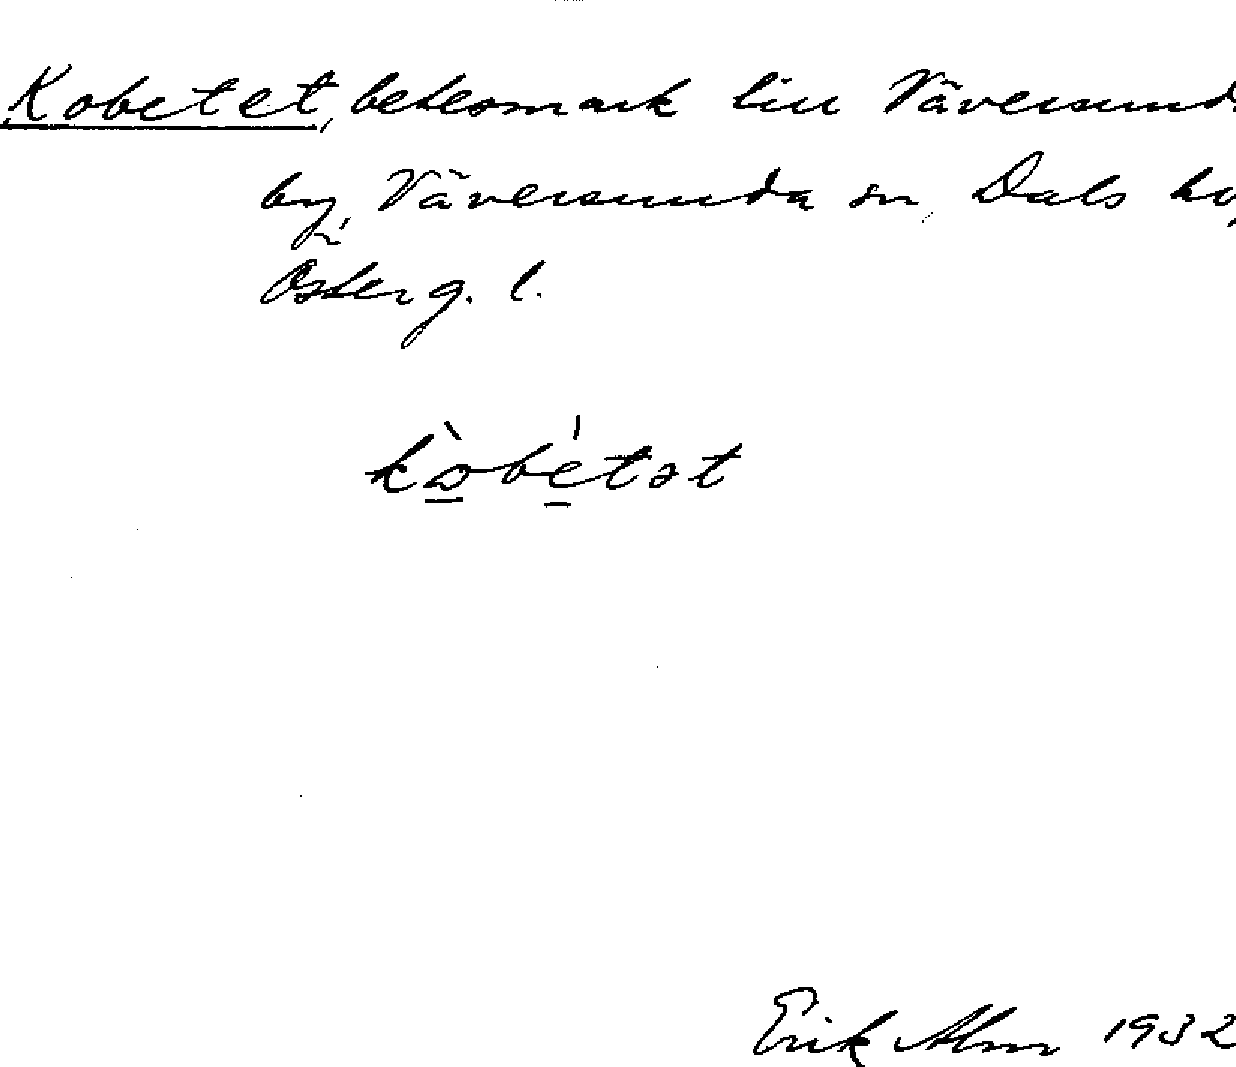 Kobetet, betesmark till Väversund
by, Väversunda sn, Dals hd,
Österg. l.
kòbétət
Erik Alm 1932